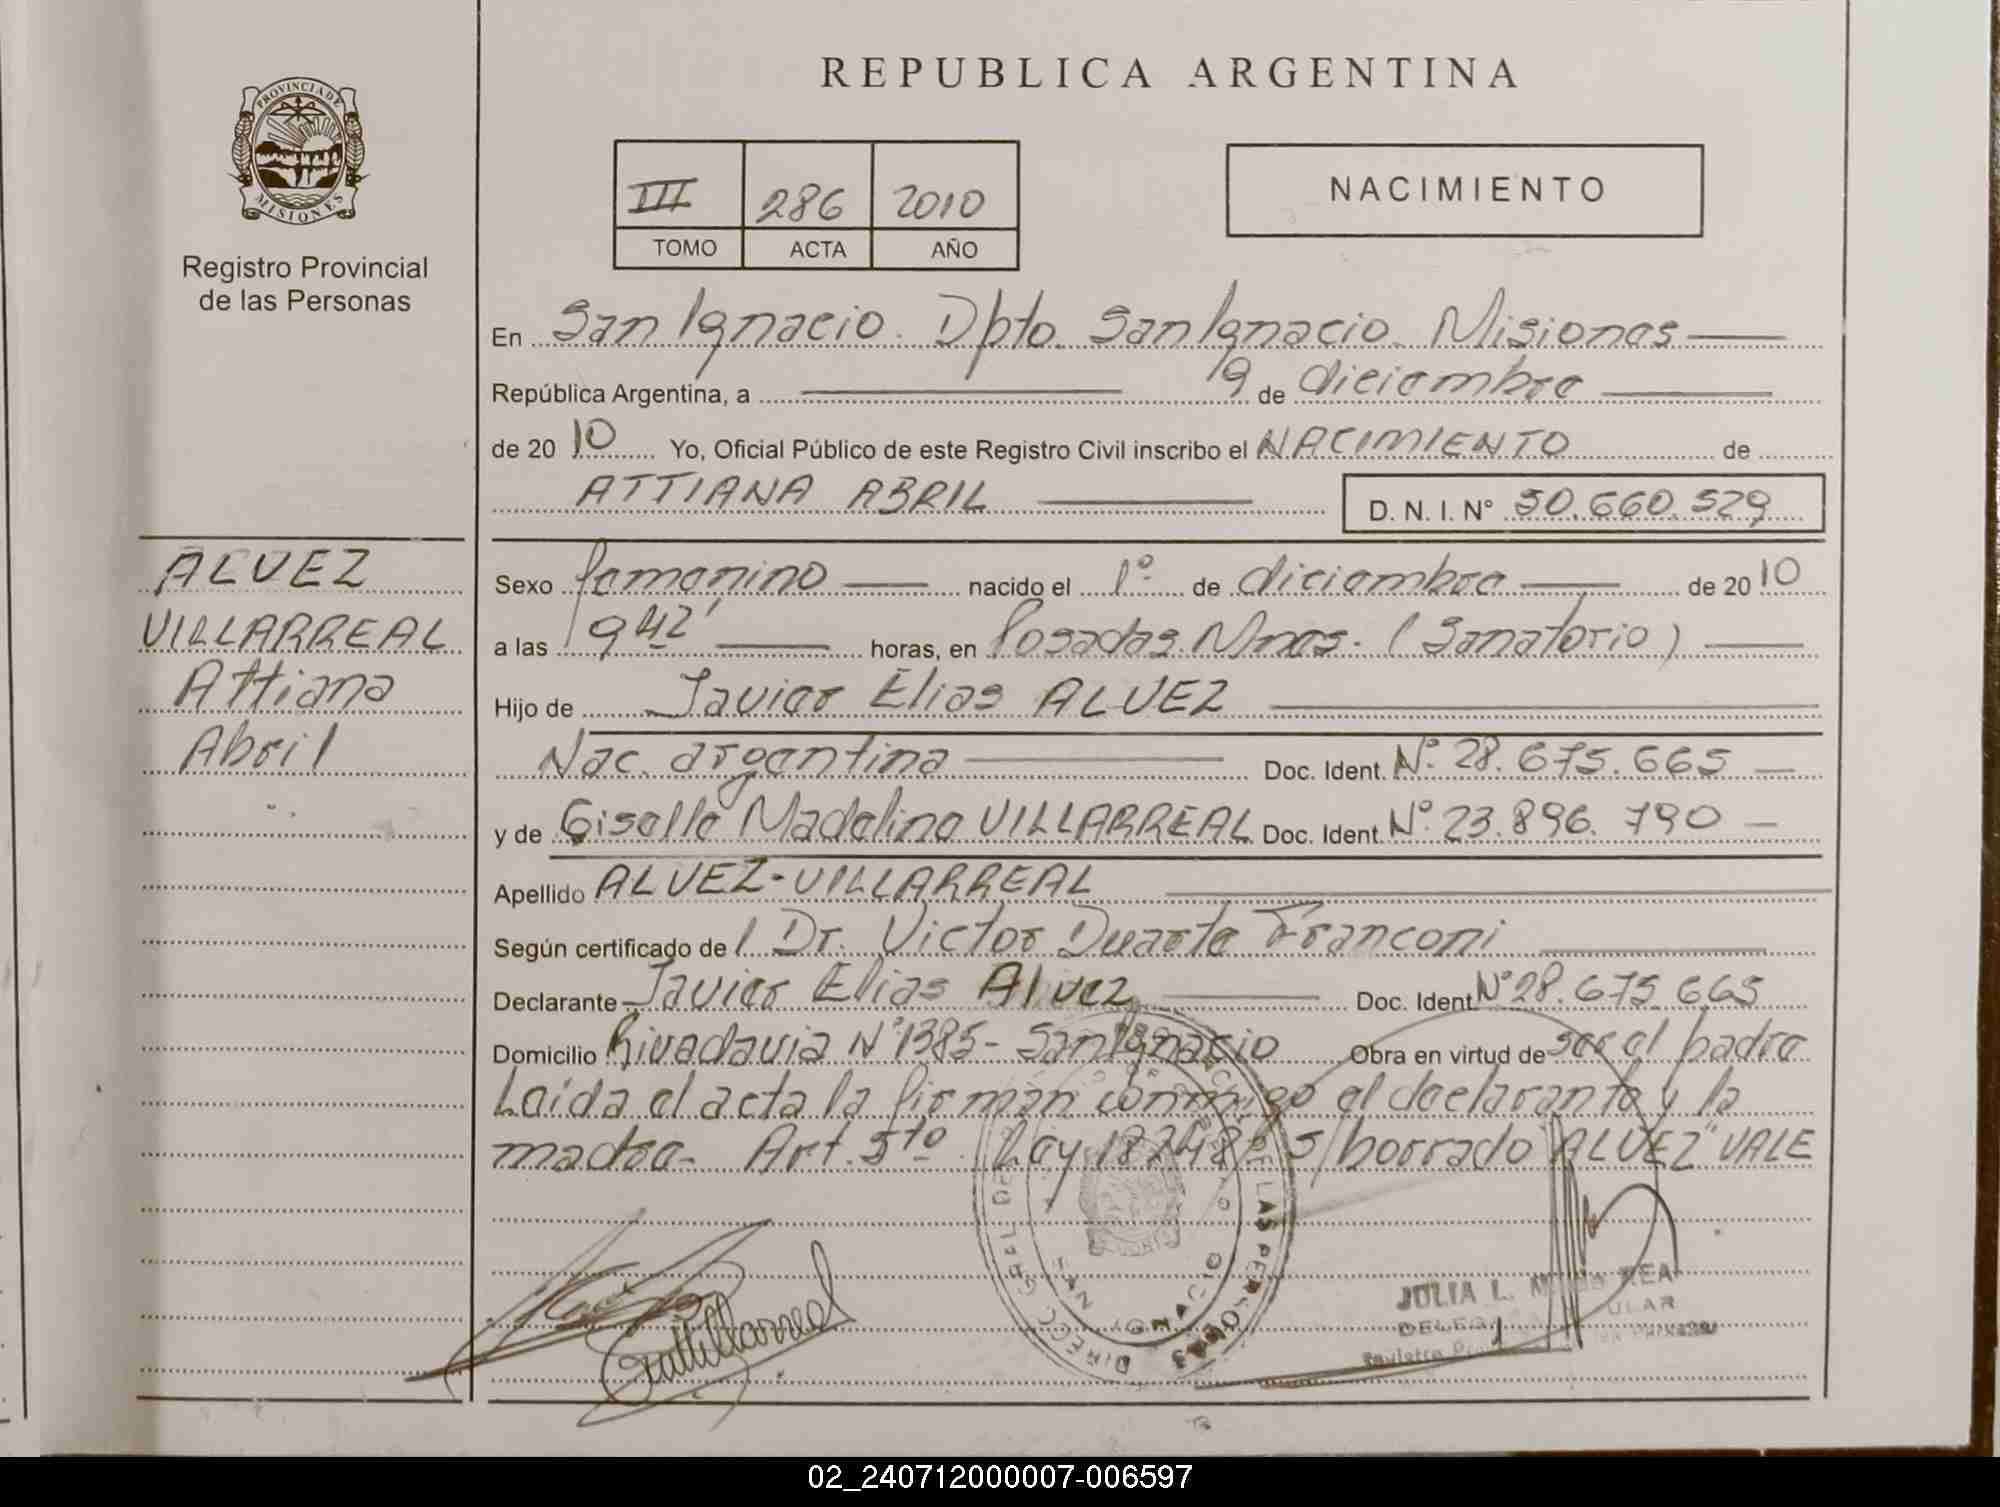 PROVINCIA DE
MISIONES
Registro Provincial
de las Personas
ALVEZ
VILLARREAL
Attiana
Abril
REPUBLICA ARGENTINA
III 286 2010
TOMO ACTA AÑO
NACIMIENTO
En San Ignacio. Dpto. San Ignacio. Misiones
República Argentina, a 19 de diciembre
de 2010 Yo, Oficial Público de este Registro Civil inscribo el NACIMIENTO de
ATTIANA ABRIL D. N. I. N° 50.660.529
Sexo femenino nacido el 1° de diciembre de 2010
a las 9 42' horas, en Posadas. Mnes. (Sanatorio)
Hijo de Javier Elias ALVEZ
Nac. argentina Doc. Ident. N° 28.675.665
y de Giselle Madelina VILLARREAL Doc. Ident. N° 23.896.790
Apellido ALVEZ-VILLARREAL
Según certificado de l Dr. Victor Duarte Franconi
Declarante Javier Elias Alvez Doc. Ident. N° 28.675.665
Domicilio Rivadavia N° 1385 - San Ignacio Obra en virtud de ser el padre
Leída el acta la firman conmigo el declarante y la
madre- Art. 5to Ley 18248 S/borrado "ALVEZ" VALE
DIRECC. GRAL. DE LAS PERSONAS
SAN IGNACIO
JULIA L.
Registro
02_240712000007-006597